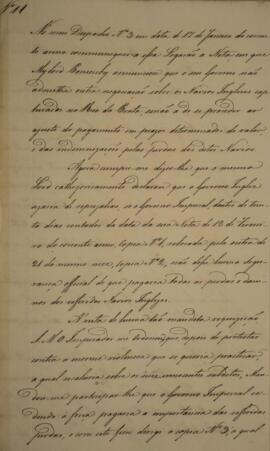 Nº 11
No meu Despacho Nº 3 em data de 17 de Janeiro do corrente
anno communiquei a essa Legação a Nota, em que
Mylord Ponsonby annunciava que o seu Governo não
admittia outra negociação sobre os Navios Inglezes cap-
turados no Rio da Prata, senão a de se proceder ao
ajuste do pagamento em prazos determinados do valor,
e das indemnizações pelas perdas dos ditos Navios.
Agora cumpre-me dizer-lhe que o mesmo
Lord cathegoricamente declarou que o Governo Inglez
usaria de represalias, se o Governo Imperial, dentro de trin-
ta dias contados da data da sua Nota de 18 de Feverei-
ro do corrente anno, (copia Nº 1, reforçada pela outra de
21 do mesmo mez, copia Nº 2, não desse huma segu-
rança official de que pagaria todas as perdas e dam-
nos dos referidos Navios Inglezes.
N'vista de huma tão mandada requisição
S. M. O Imperador me ordenou que depois de protestar
contra a enorme violencia que se queria practicar,
a qual recahiria sobre os seus innocentes subditos, Man-
dou-me participar-lhe que o Governo Imperial ce-
dendo á força pagaria a importancia das referidas
perdas, e com este fim dirigi a copia Nº 3, a qual